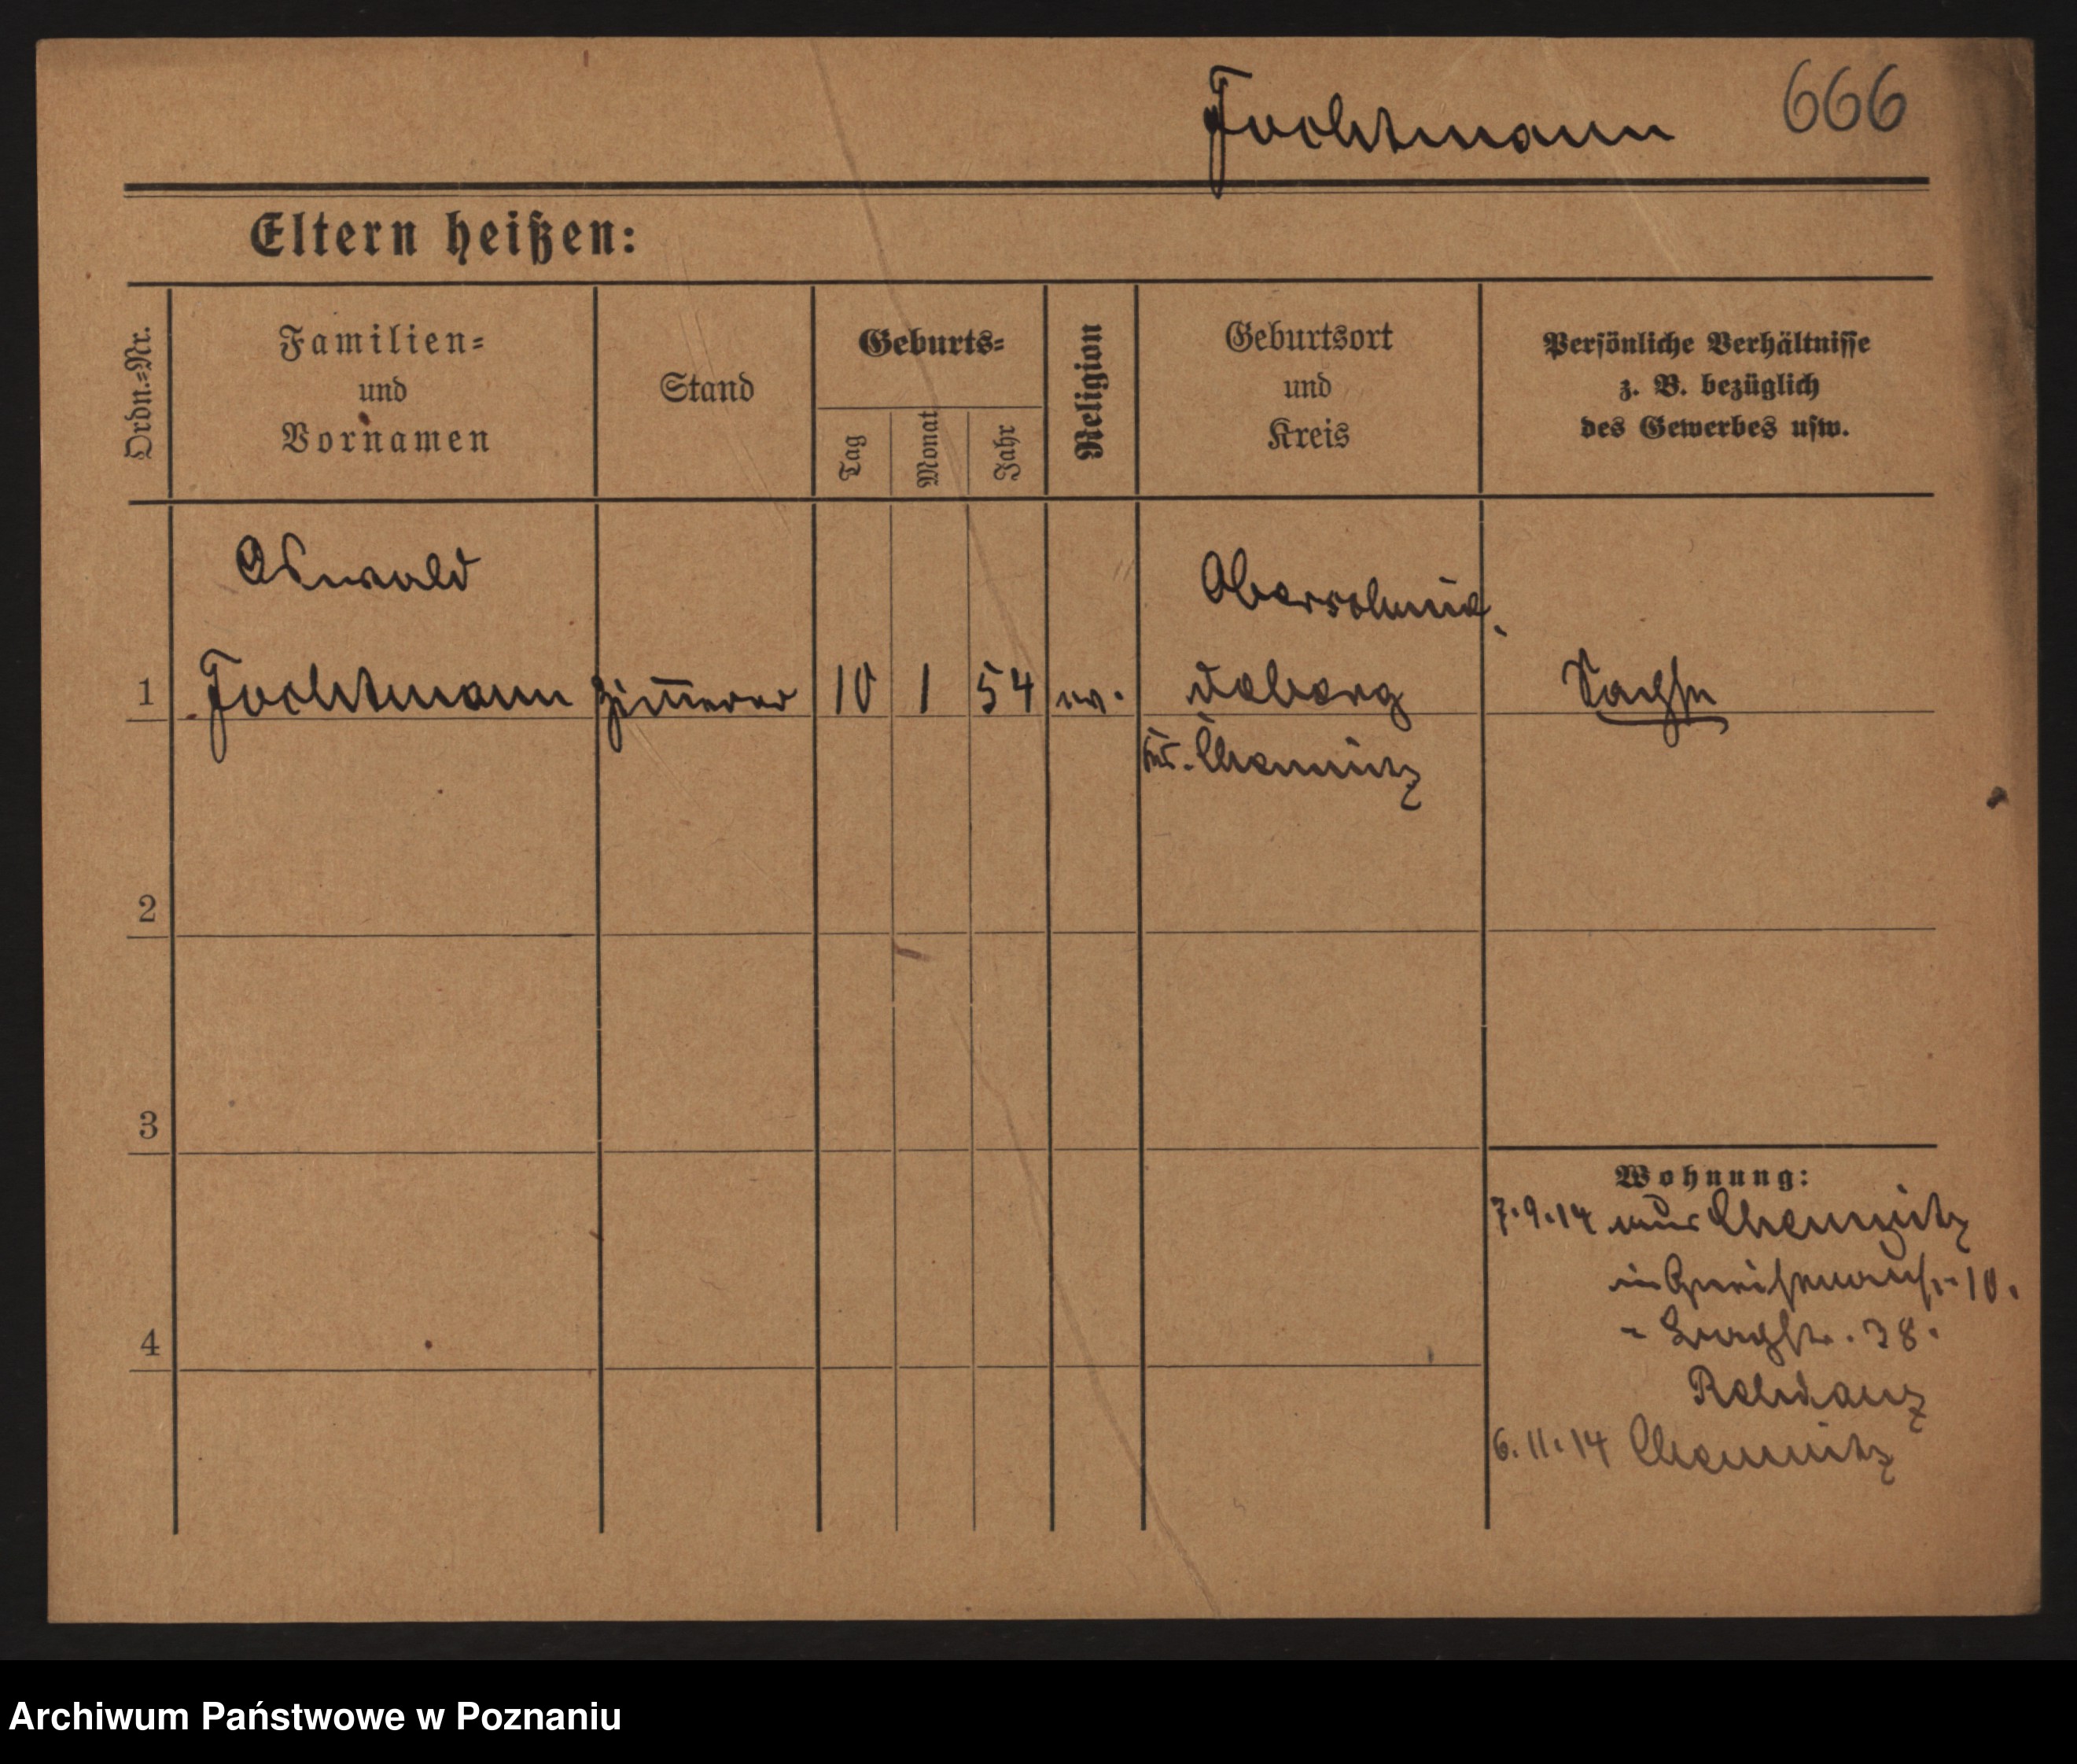 Fochtmann 666
Eltern heißen:
Ordn.=Nr.
Familien=
und
Vornamen
Stand
Geburts=
Tag
Monat
Jahr
Religion
Geburtsort
und
Kreis
Persönliche Verhältnisse
z. B. bezüglich
des Gewerbes usw.
Oswald
Oberschmie
1 Fochtmann Zimmerer 10 1 54 ev. deberg Sachse
Kr. Chemnitz
2
3
Wohnung:
7.9.14 aus Chemnitz
in 10.
4
38.
Rehdanz
6.11.14 Chemnitz
Archiwum Państwowe w Poznaniu